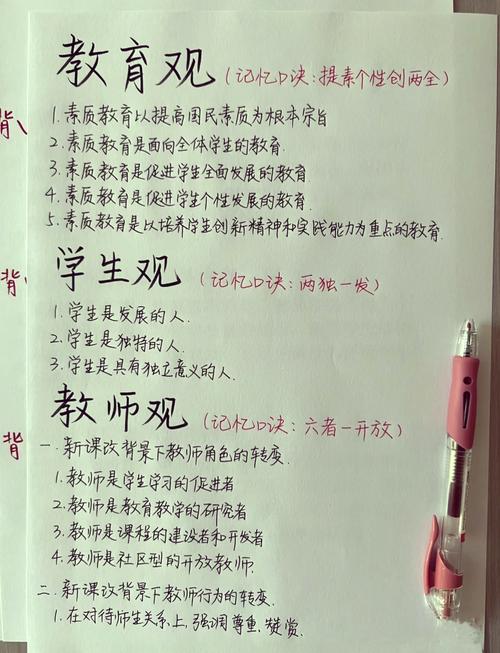 教育观(记忆口诀:提素个性创两全)
1.素质教育以提高国民素质为根本宗旨
2.素质教育是面向全体学生的教育.
3.素质教育是促进学生全面发展的教育.
4.素质教育是促进学生个性发展的教育.
5.素质教育是以培养学生创新精神和实践能力为重点的教育.
背
学生观(记忆口诀:两独一发)
1.学生是发展的人.
2.学生是独特的人.
3.学生是具有独立意义的人.
背
教师观(记忆口诀:六者一开放)
背
一.新课改背景下教师角色的转变.
1.教师是学生学习的促进者
2.教师是教育教学的研究者
3.教师是课程的建设者和开发者
4.教师是社区型的开放教师.
二.新课改背景下教师行为的转变.
1.在对待师生关系上,强调尊重.赞赏.